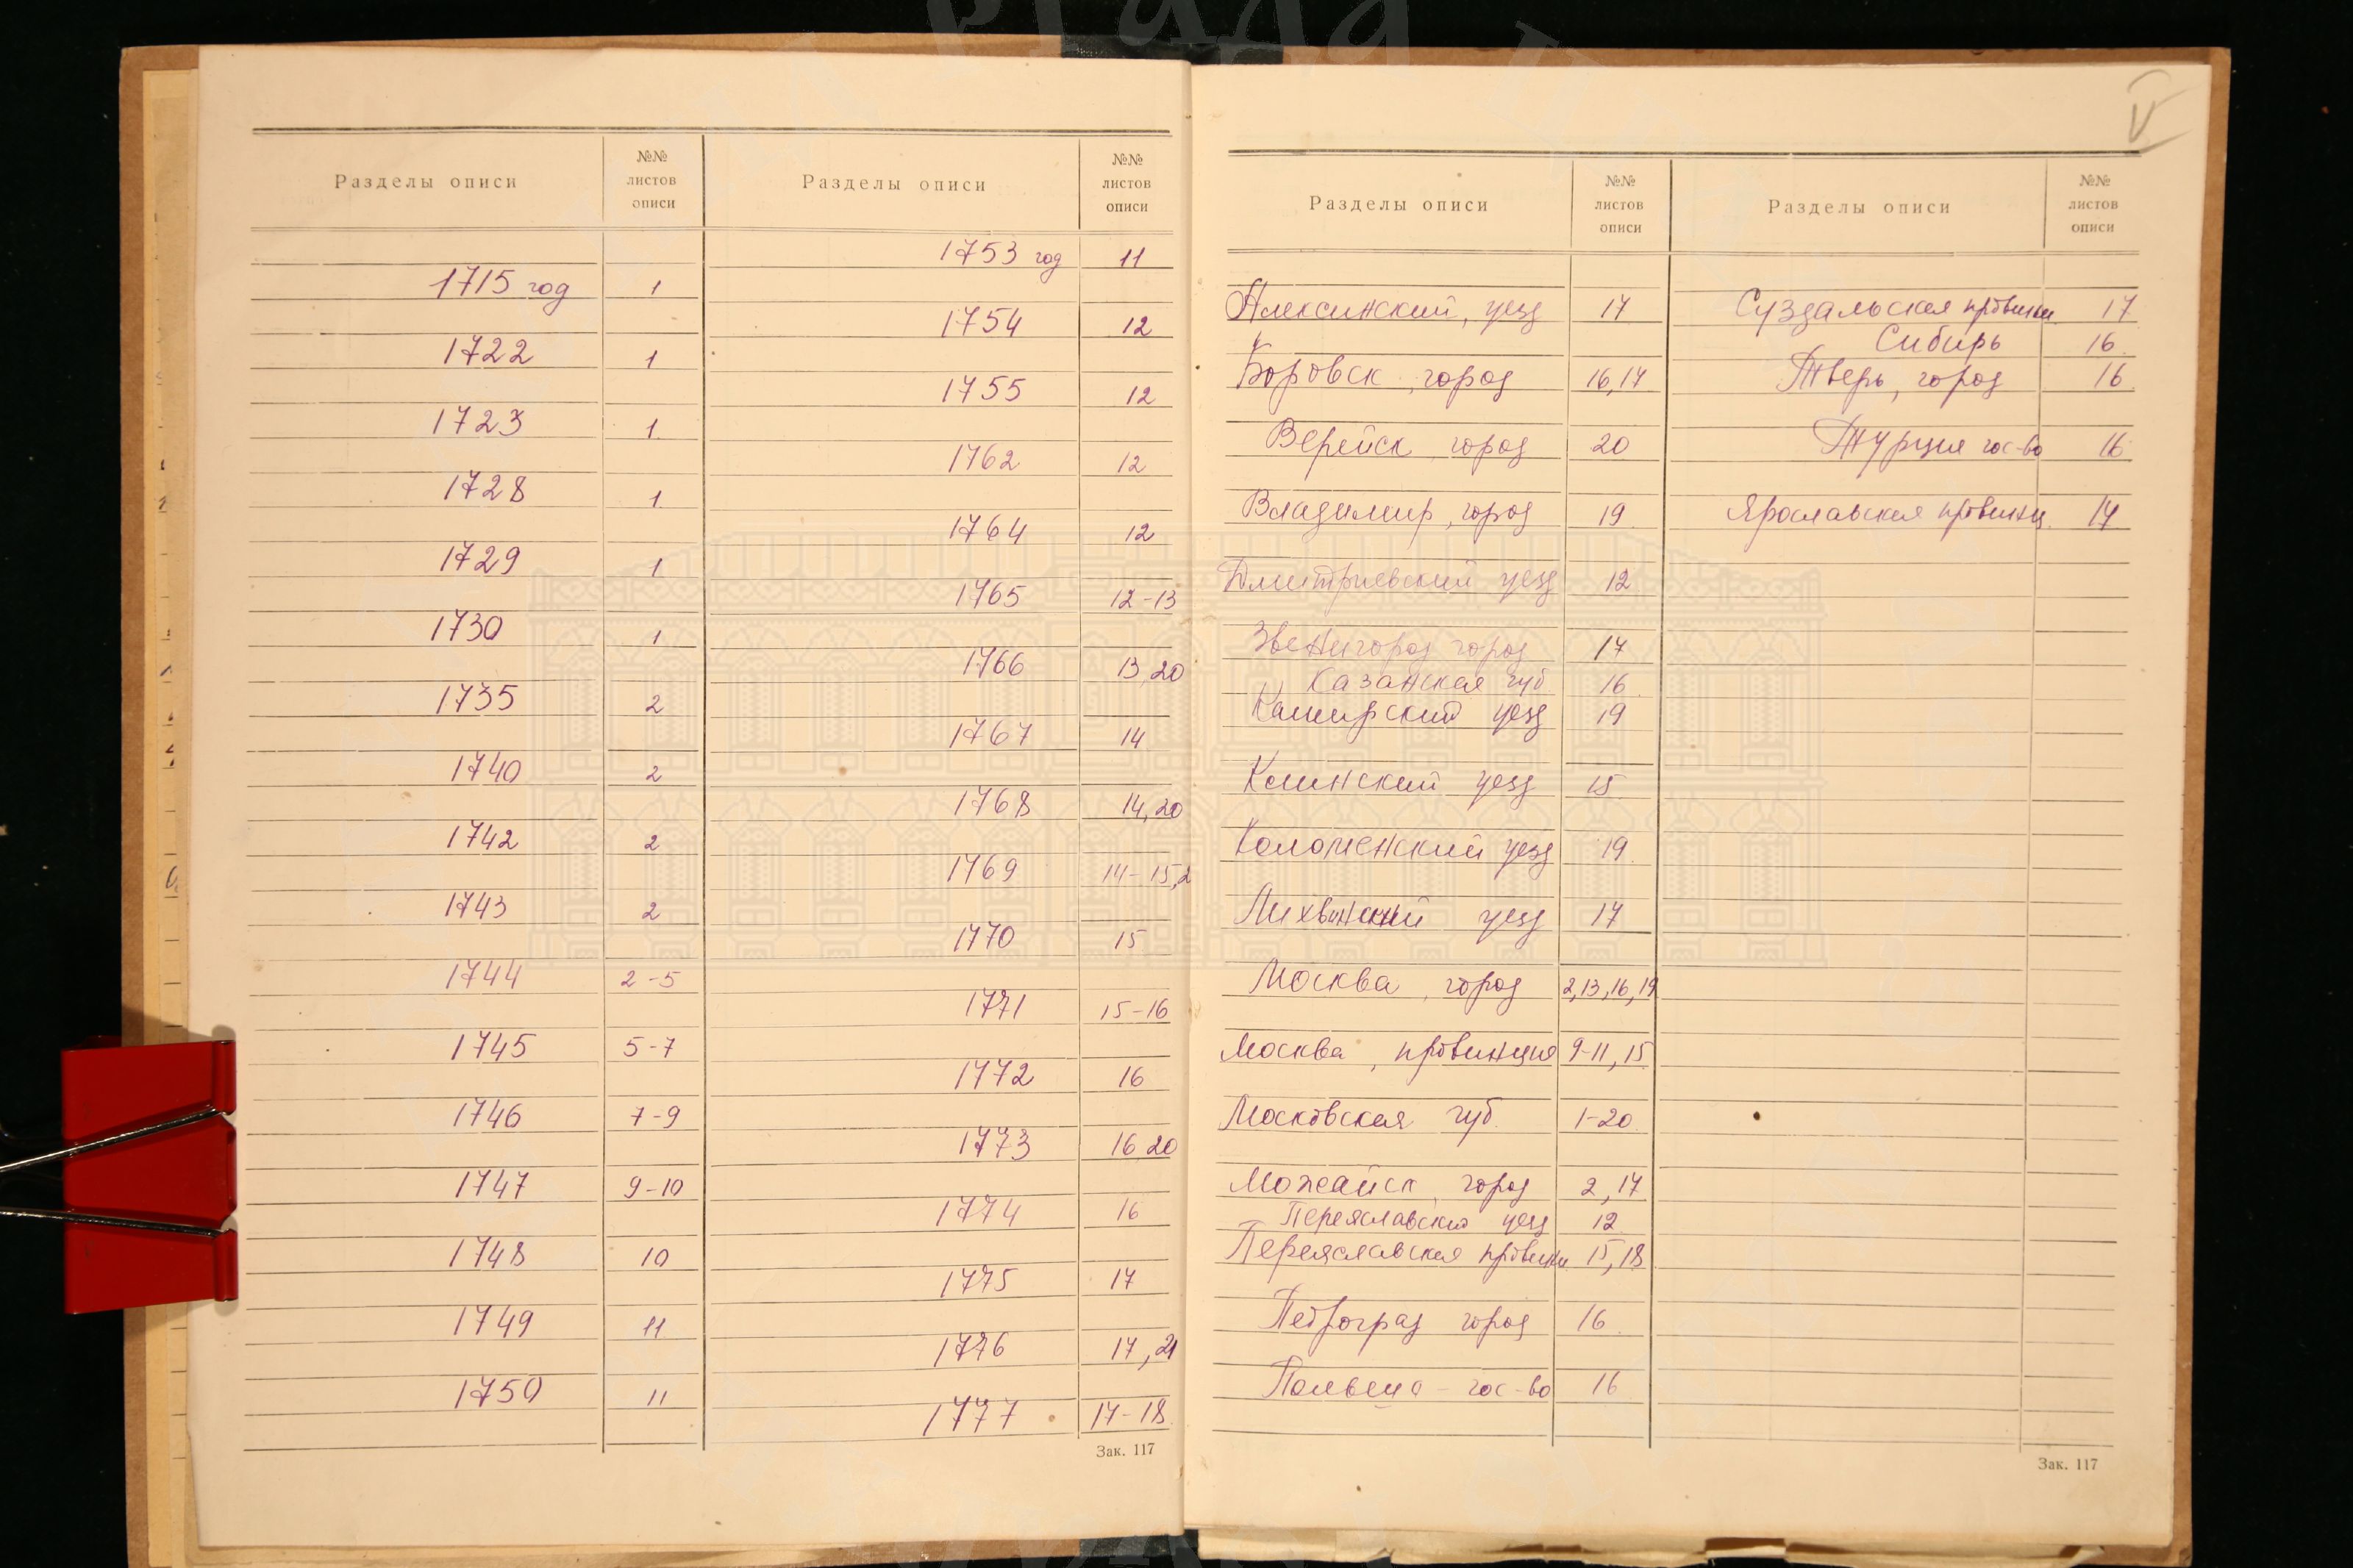 V
Разделы описи
№№ листов описи
Разделы описи
№№ листов описи
1715 год 1
1722 1
1723 1
1728 1
1729 1
1730 1
1735 2
1740 2
1742 2
1743 2
1744 2-5
1745 5-7
1746 7-9
1747 9-10
1748 10
1749 11
1750 11
1753 год 11
1754 12
1755 12
1762 12
1764 12
1765 12-13
1766 13,20
1767 14
1768 14,20
1769 14-15,2
1770 15
1771 15-16
1772 16
1773 16 20
1774 16
1775 17
1776 17, 21
1777 17-18
Зак. 117
Разделы описи
№№ листов описи
Разделы описи
№№ листов описи
Алексинский, уезд 17
Боровск, город 16,17
Верейск, город 20
Владимир, город 19
Дмитриевский уезд 12
Звенигород город 17
Казанская губ 16
Каширский уезд 19
Клинский уезд 15
Коломенский уезд 19
Лихвинский уезд 17
Москва, город 2,13,16,19
Москва, провинция 9-11, 15
Московская губ. 1-20
Можайск, город 2, 17
Переяславский уезд 12
Переяславская провинц. 15, 18
Петроград город 16
гос-во 16
Суздальская провинц. 17
Сибирь 16
Тверь, город 16
Турция гос-во 16
Ярославская провинц. 17
Зак. 117